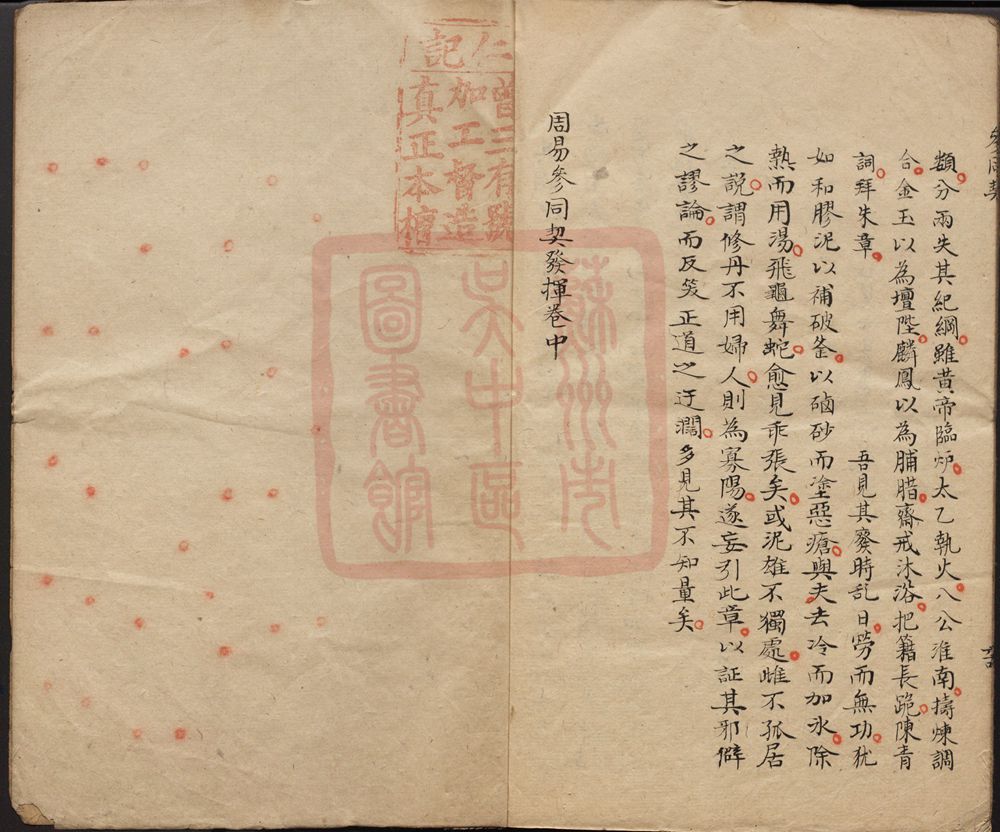 類分兩失其紀綱雖黃帝臨炉太乙執火八公淮南擣煉調
合金玉以為壇陛麟鳳以為脯腊齋戒沐浴把籍長跪陳青
詞拜朱章　吾見其廢時乱日勞而無功犹
如和膠泥以補破釜以硇砂而塗惡瘡與夫去冷而加氷除
熱而用湯飛龜舞蛇愈見乖張矣或泥雄不獨處雌不孤居
之說謂修丹不用婦人則為寡陽遂妄引此章以証其邪僻
之謬論而反笑正道之迂濶多見其不知量矣
周易參同契發揮卷中
仁記
曾三有號
加工督造
真正本槽
蘇州市
吳中區
圖書館